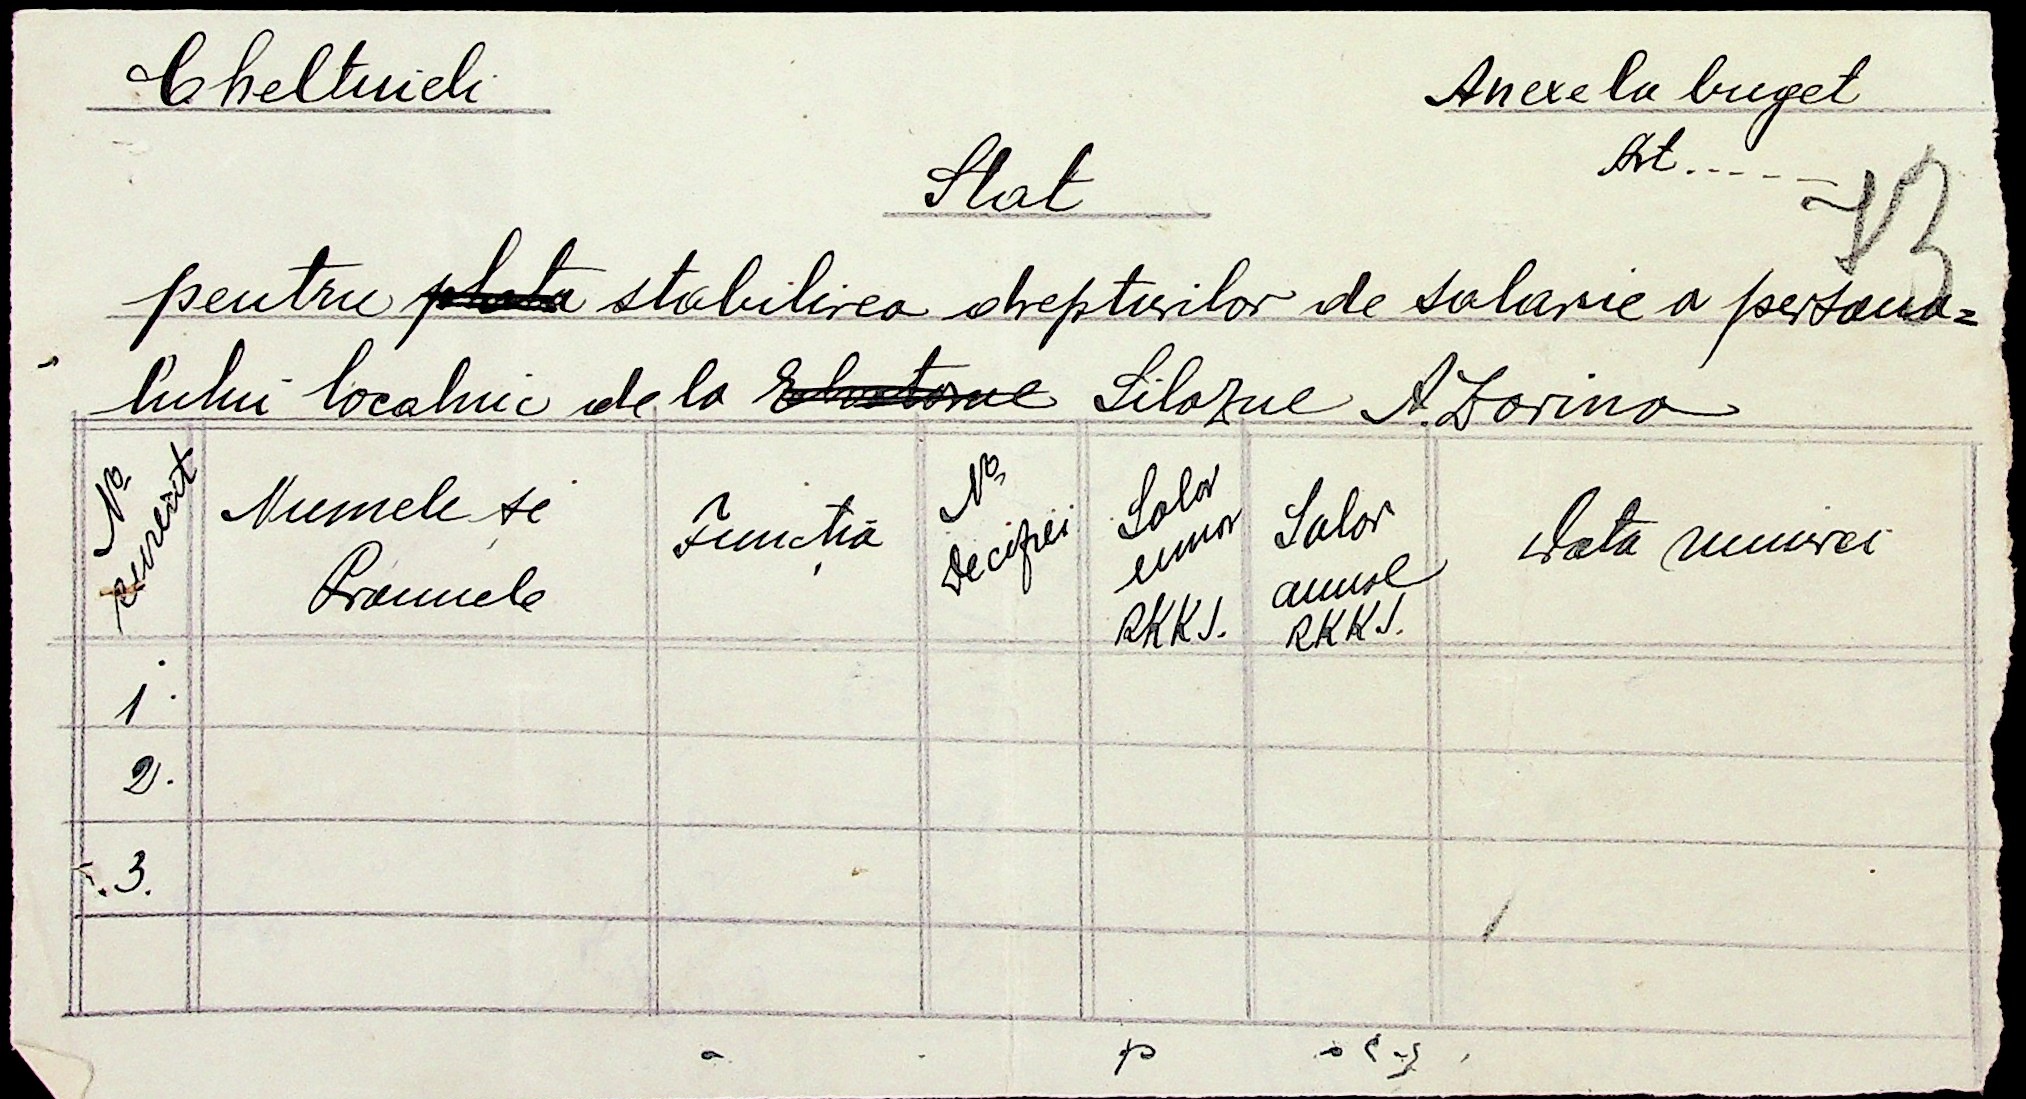 Cheltuieli
Anexe la buget
Art.....
73
Stat
pentru plata stabilirea drepturilor de salarie a persona=
lului localnic de la Silozue A. Zorino
No. curent
Numele și Pronumele
Funcția
No. Deciziei
Salar lunar RKKS.
Salar anual RKKS.
Data numirei
1.
2.
3.